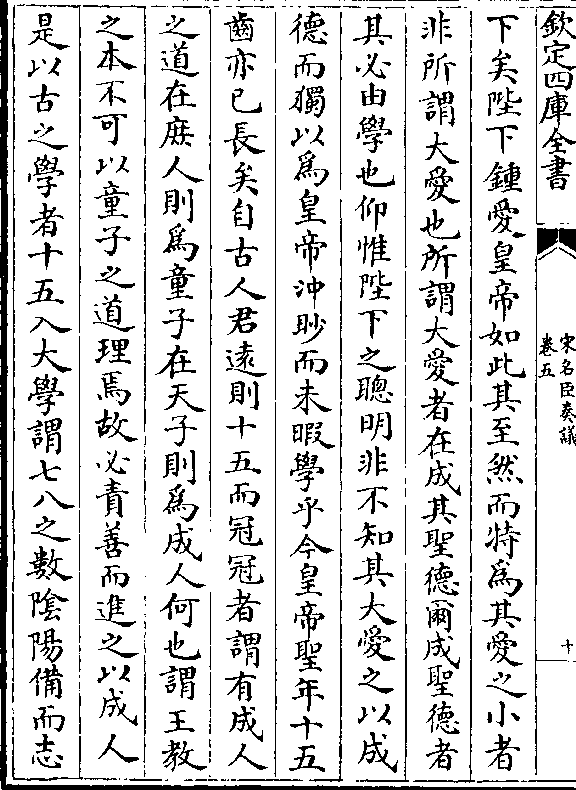 欽定四庫全書
宋名臣奏議
卷五
十
下矣陛下鍾愛皇帝如此其至然而特爲其愛之小者
非所謂大愛也所謂大愛者在成其聖德爾成聖德者
其必由學也仰惟陛下之聰明非不知其大愛之以成
德而獨以爲皇帝沖眇而未暇學乎今皇帝聖年十五
齒亦已長矣自古人君遠則十五而冠冠者謂有成人
之道在庶人則爲童子在天子則爲成人何也謂王教
之本不可以童子之道理焉故必責善而進之以成人
是以古之學者十五入大學謂七八之數陰陽備而志